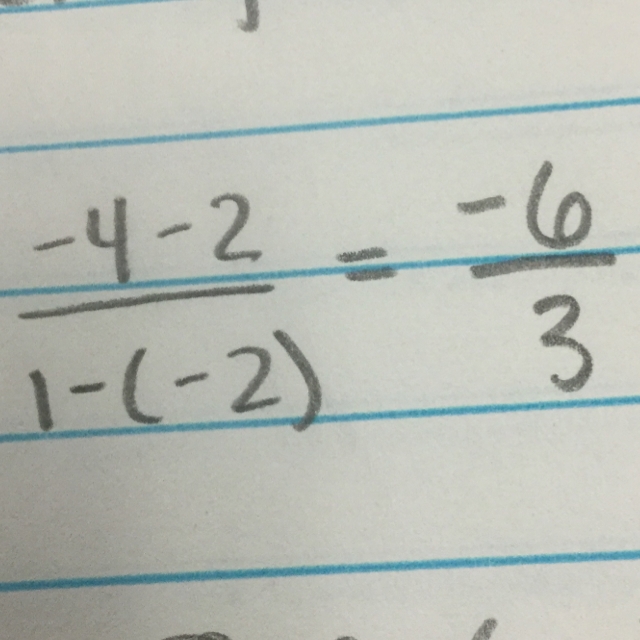 \frac{-4-2}{1-(-2)} = \frac{-6}{3}